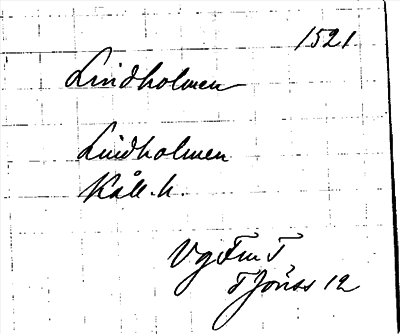 1521
Lindholmen
Lindholmen
Kåll. h.
Vg Fm T,
T Jönss 12